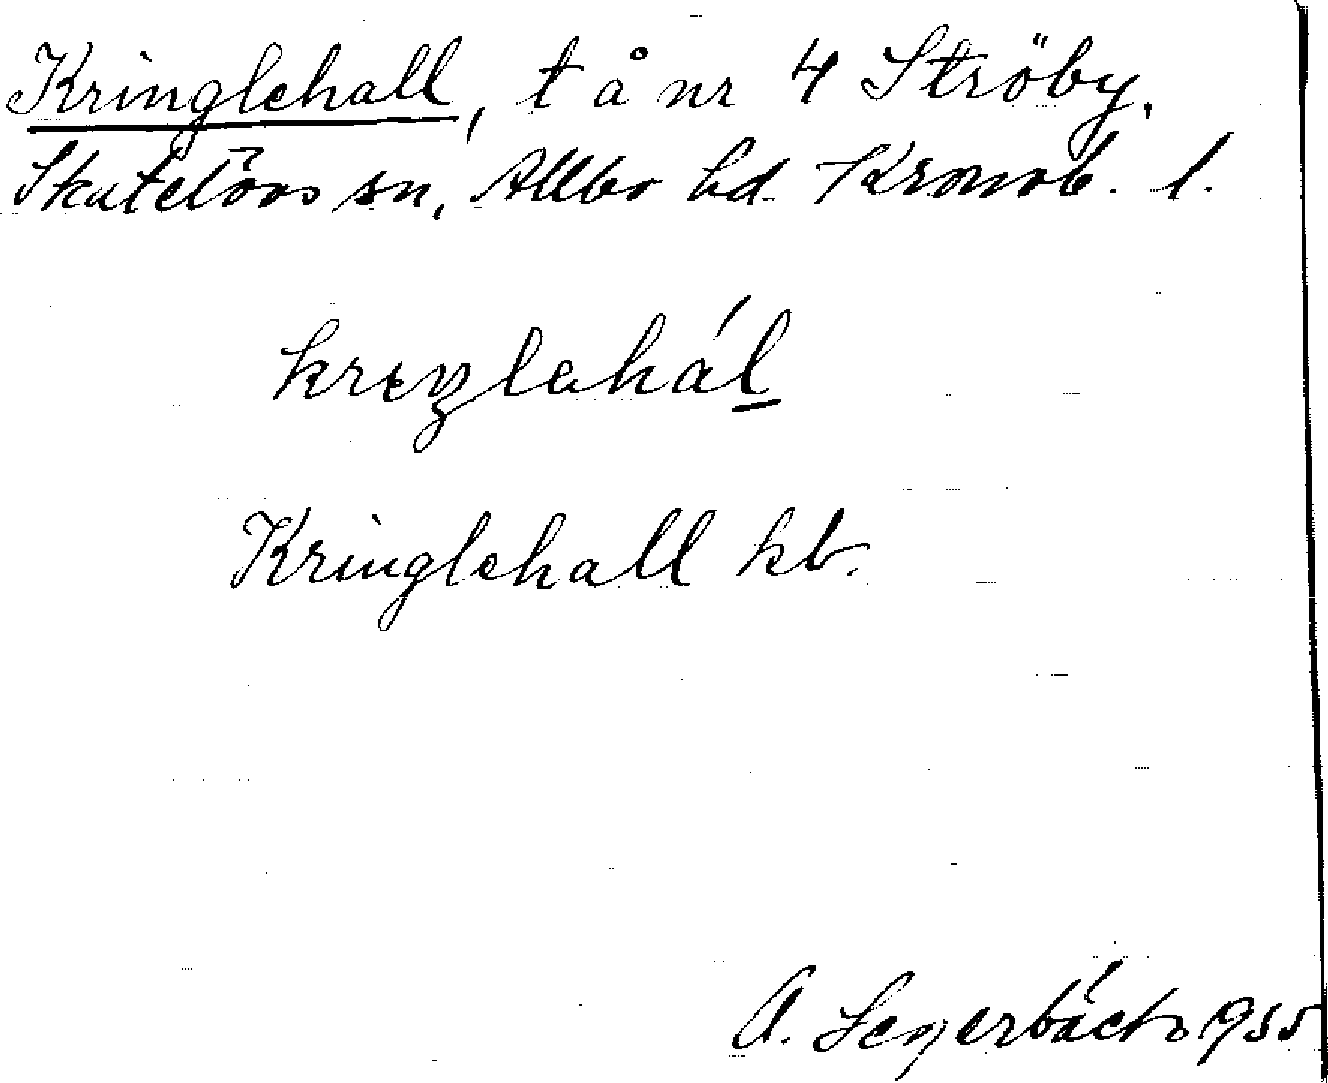 Kringlehall, t å nr 4 Ströby.
Skatelövs sn, Allbo hd. Kronob. l.
kreŋlahál
Kringlehall kb.
A. Segerbäck 1955